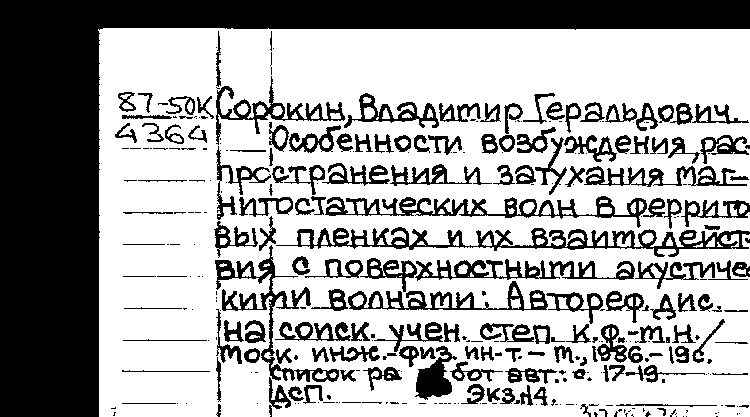 87-50К Сорокин, Владимир Геральдович.
4364 Особенности возбуждения, рас-
пространения и затухания маг-
нитостатических волн в феррито
вых пленках и их взаимодейст
вия с поверхностными акустиче
кими волнами: Автореф. дис.
на соиск. учен. степ. к.ф.-м.н./
Моск. инж.-физ. ин-т. – М., 1986. – 19с.
Список ра бот авт.: с. 17-19.
ДСП. Экз.№4.